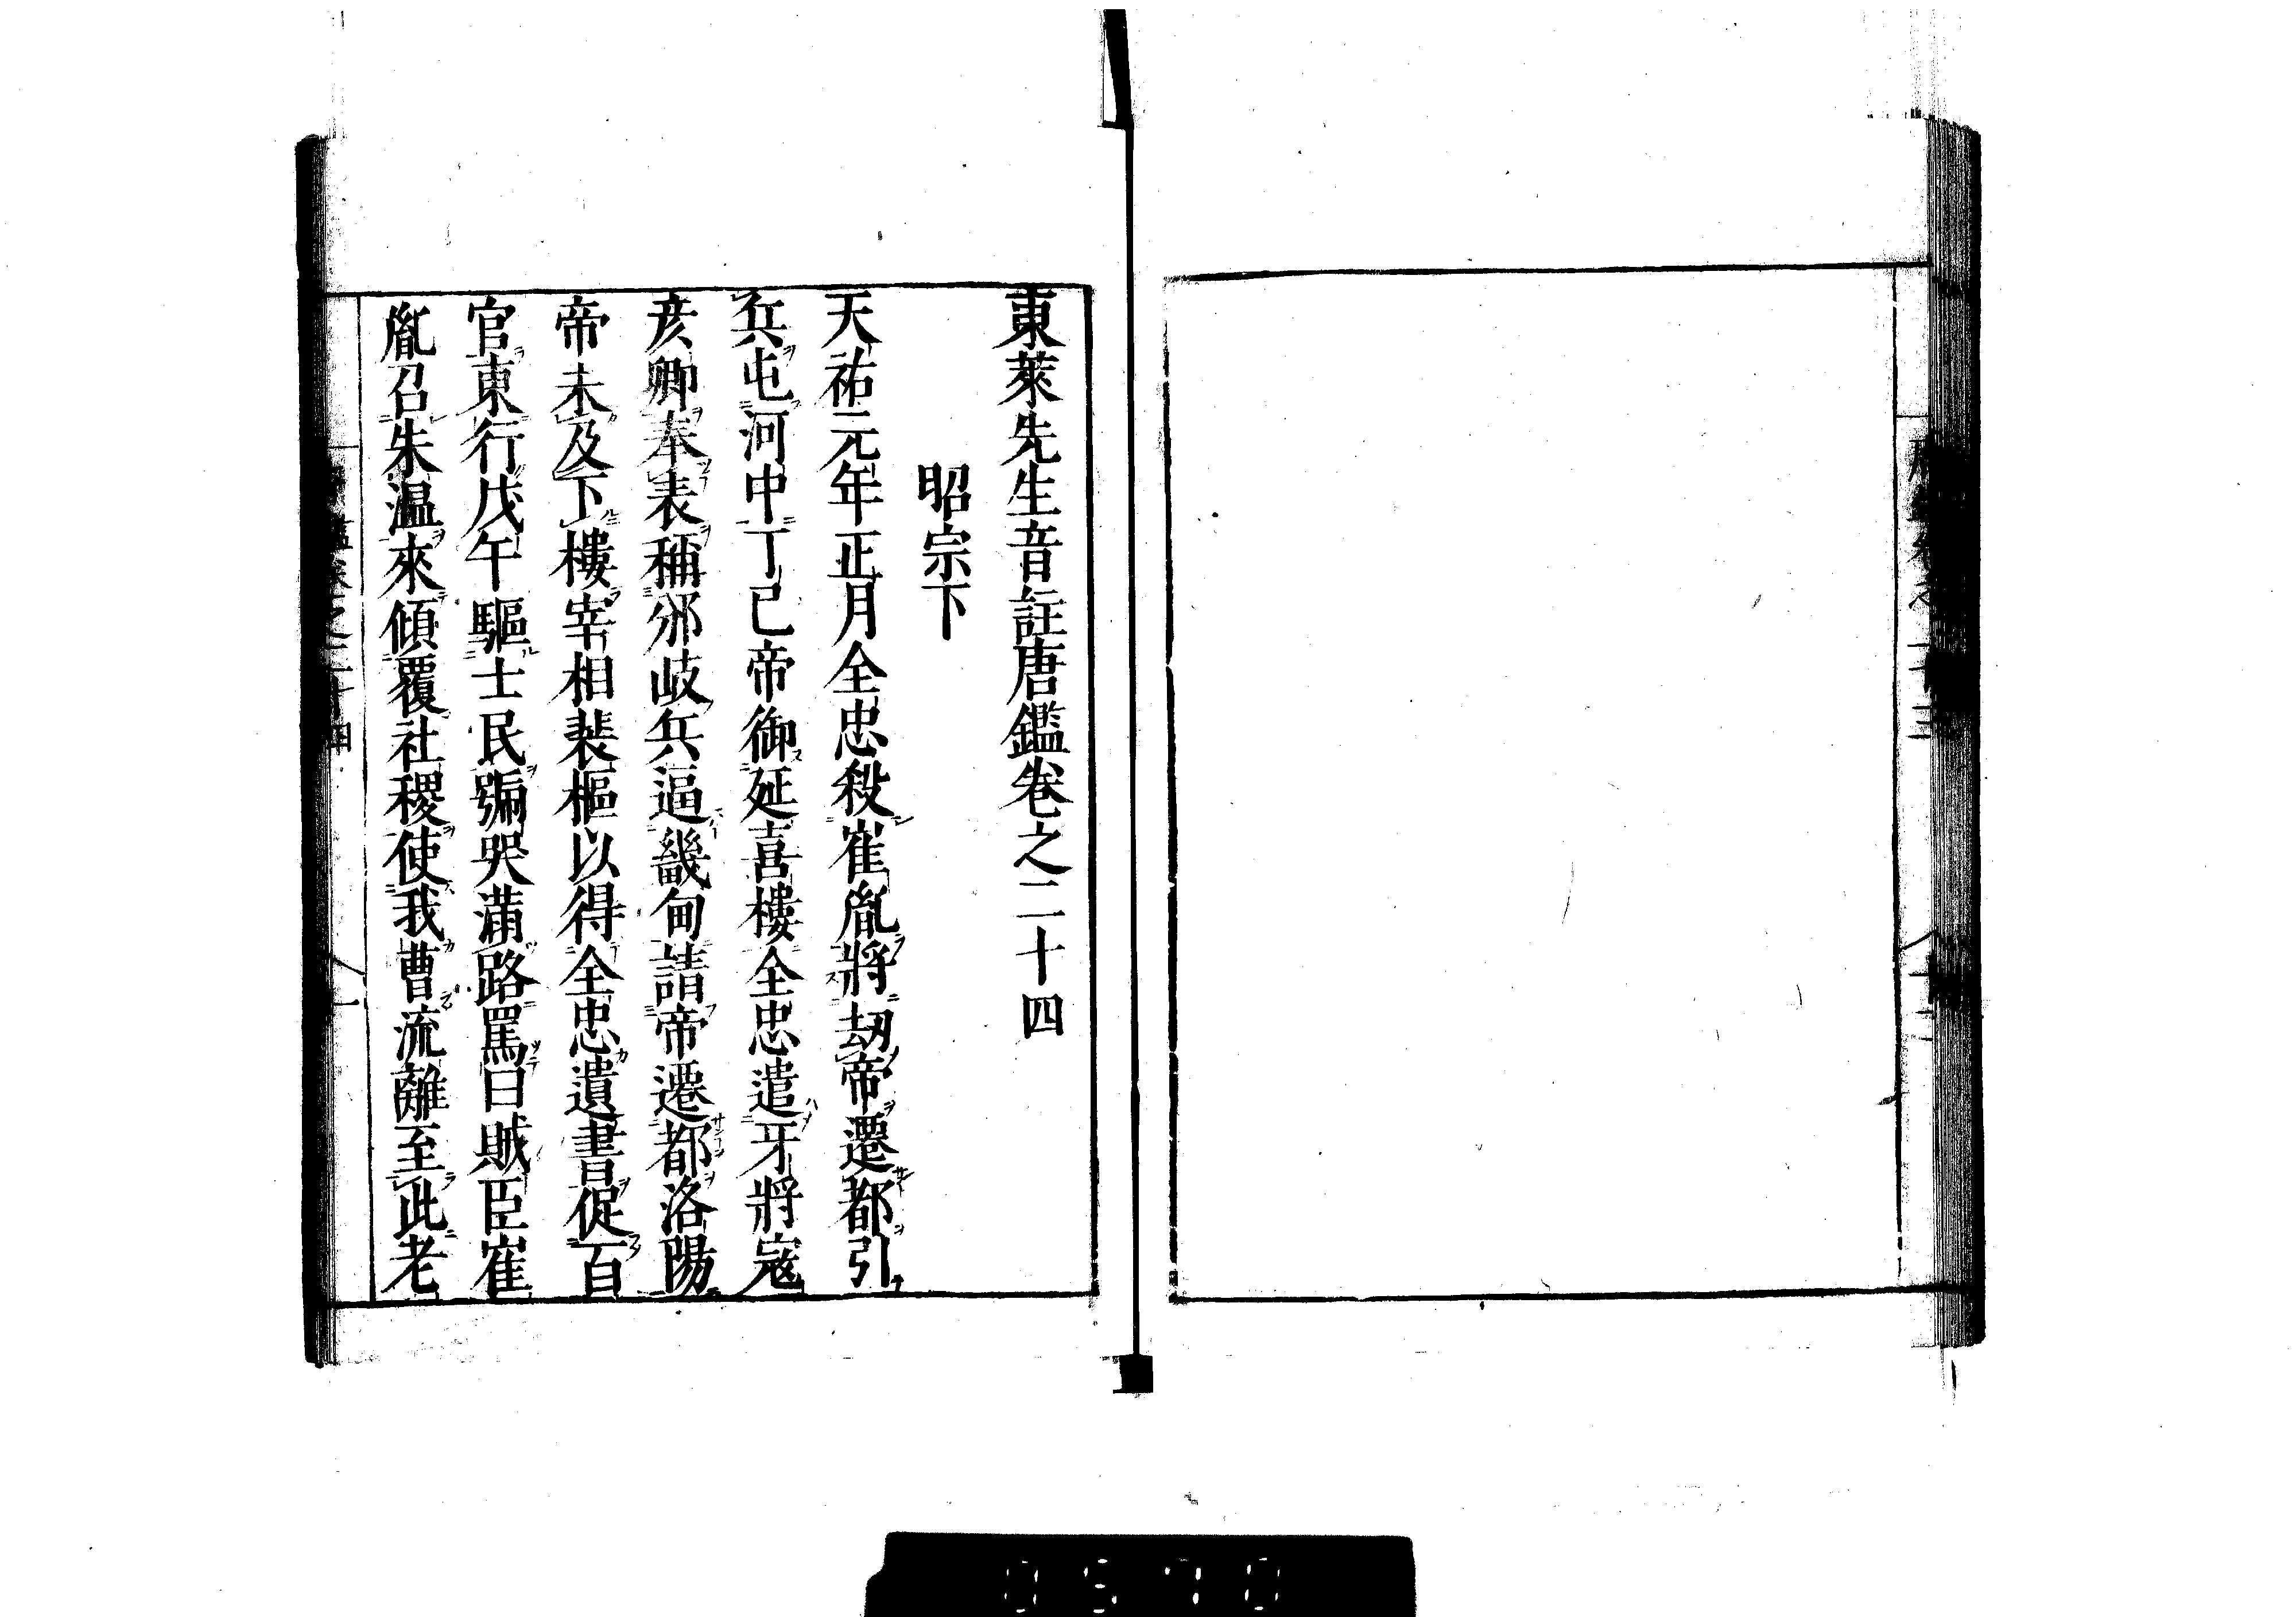 東萊先生音註唐鑑卷之二十四
昭宗下
天祐元年正月全忠殺崔胤將劫帝遷都引
兵屯河中丁已帝御延喜樓全忠遣牙將寇
彦卿奉表稱邠岐兵逼畿甸請帝遷都洛陽
帝未及下樓宰相裴樞以得全忠遺書促百
官東行戊午驅士民號哭滿路罵曰賊臣崔
胤召朱温來傾覆社稷使我曹流離至此老
0570